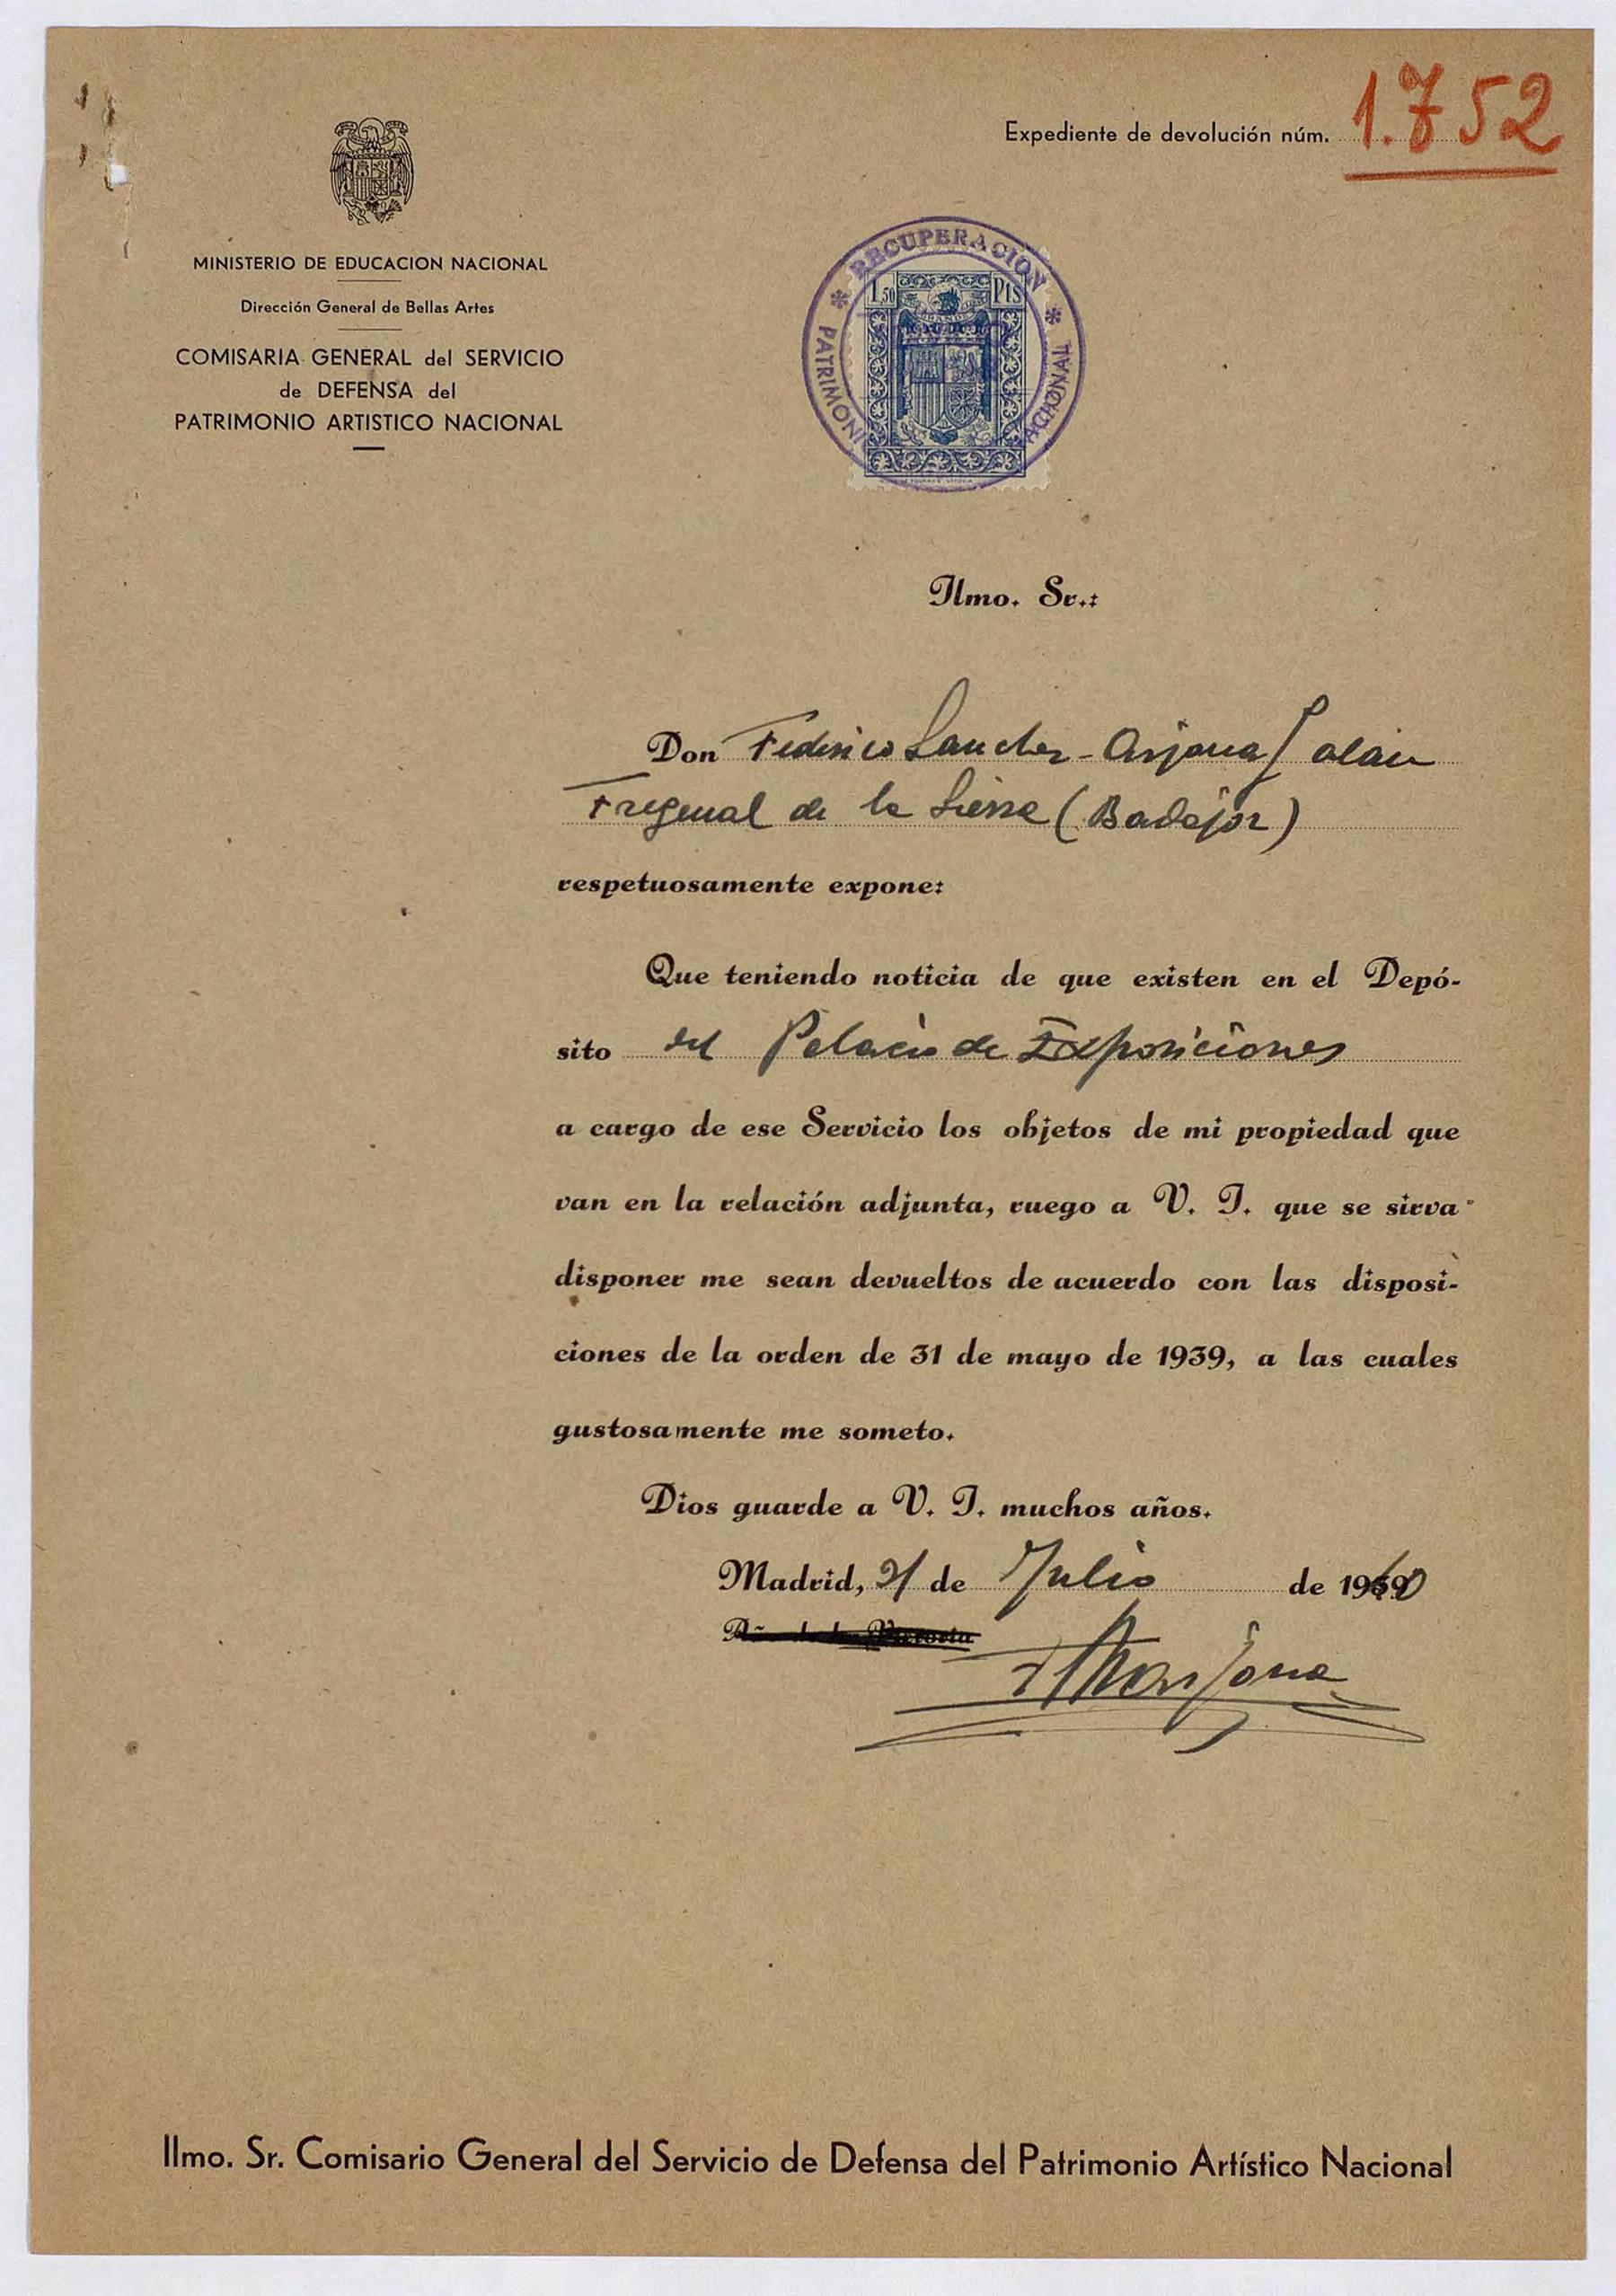 Expediente de devolución núm. 1.752
MINISTERIO DE EDUCACION NACIONAL
Dirección General de Bellas Artes
COMISARIA GENERAL del SERVICIO
de DEFENSA del
PATRIMONIO ARTISTICO NACIONAL
RECUPERACION
1,50 PTS
PATRIMONI ACIONAL
Ilmo. Sr.:
Don Federico Sanchez-Arjona Galán
Fregenal de la Sierra (Badajoz)
respetuosamente expone:
Que teniendo noticia de que existen en el Depó-
sito del Palacio de Exposiciones
a cargo de ese Servicio los objetos de mi propiedad que
van en la relación adjunta, ruego a V. I. que se sirva
disponer me sean devueltos de acuerdo con las disposi-
ciones de la orden de 31 de mayo de 1939, a las cuales
gustosamente me someto.
Dios guarde a V. I. muchos años.
Madrid, 21 de Julio de 1940
Año de la Victoria
Arjona
Ilmo. Sr. Comisario General del Servicio de Defensa del Patrimonio Artístico Nacional